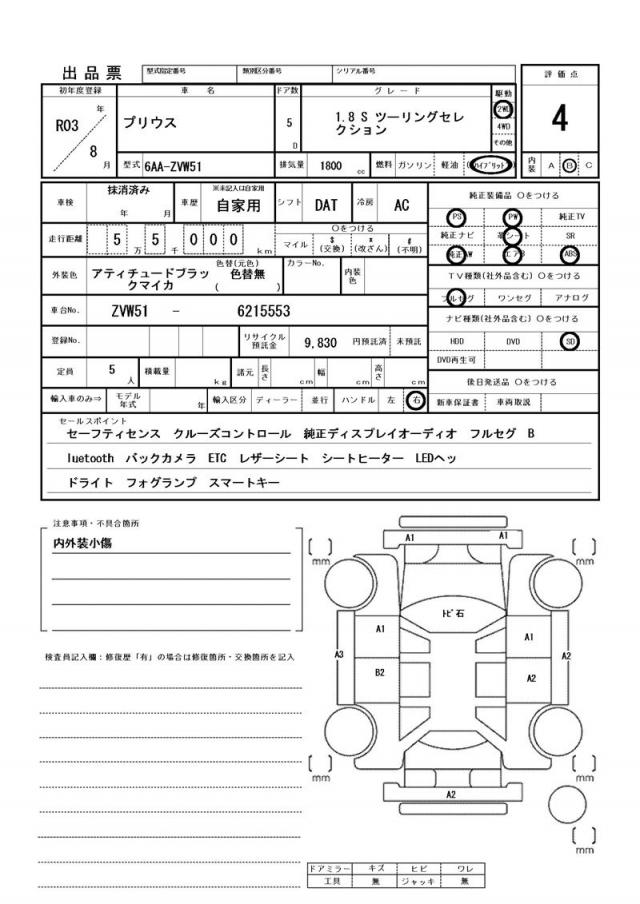 出品票 型式指定番号 類別区分番号 シリアル番号 評価点
初年度登録 車名 ドア数 グレード 駆動
R03 年 8 月 プリウス 5 D 1.8S ツーリングセレクション 2WD 4WD その他 4
型式 6AA-ZVW51 排気量 1800 cc 燃料 ガソリン 軽油 (ハイブリット) 内装 A B C
車検 抹消済み 年 月 車歴 ※未記入は自家用 自家用 シフト DAT 冷房 AC
走行距離 5 5 0 0 0 万 千 km ○をつける マイル $(交換) *(改ざん) #(不明)
外装色 アティチュードブラックマイカ 色替(元色) 色替無 ( ) カラーNo. 内装色
車台No. ZVW51 - 6215553
登録No. リサイクル預託金 9,830 円預託済 未預託
定員 5 人 積載量 kg 諸元 長さ cm 幅 cm 高さ cm
輸入車のみ⇒ モデル年式 年 輸入区分 ディーラー 並行 ハンドル 左 右
純正装備品 ○をつける
PS PW 純正TV
純正ナビ 革シート SR
純正AW エアB ABS
TV種類(社外品含む) ○をつける
フルセグ ワンセグ アナログ
ナビ種類(社外品含む) ○をつける
HDD DVD SD
DVD再生可
後日発送品 ○をつける
新車保証書 車両取説
セールスポイント
セーフティセンス クルーズコントロール 純正ディスプレイオーディオ フルセグ B
luetooth バックカメラ ETC レザーシート シートヒーター LEDヘッ
ドライト フォグランプ スマートキー
注意事項・不具合箇所
内外装小傷
検査員記入欄:修復歴「有」の場合は修復箇所・交換箇所を記入
A1 A1
mm mm
トビ石
A1 A1
A3 A2
B2 A2
mm mm
A2
mm
ドアミラー キズ ヒビ ワレ
工具 無 ジャッキ 無